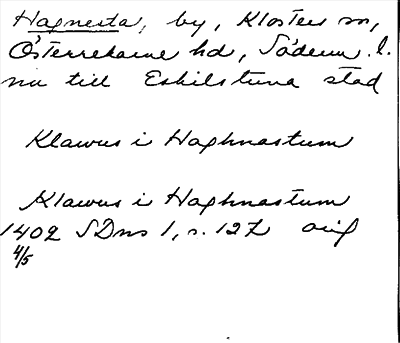 Hagnesta, by, Klosters sn,
Österrekarne hd, Söderm. l.
nu till Eskilstuna stad
Klawus i Haghnastum
Klawus i Haghnastum
1402 SDns 1, s. 127 orig
4/5